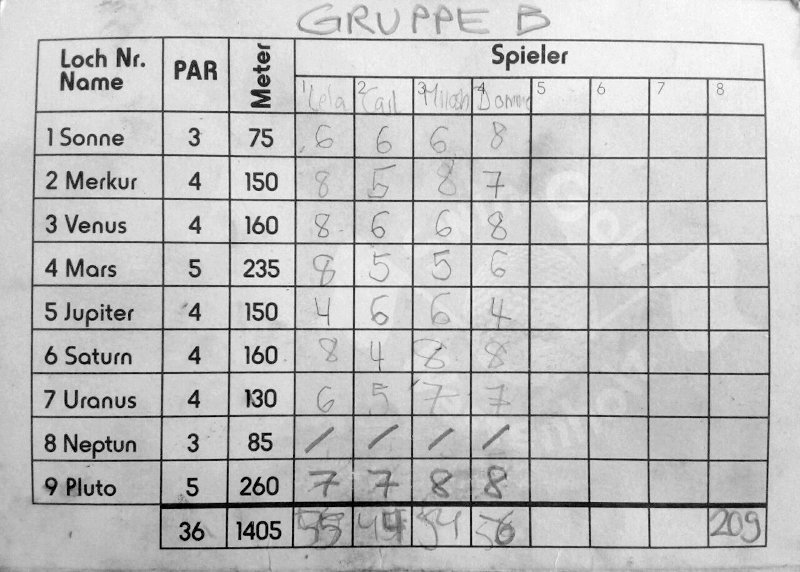 GRUPPE B
Loch Nr. Name PAR Meter Spieler
1 Lela 2 Carl 3 4 5 6 7 8
1 Sonne 3 75 6 6 6 8
2 Merkur 4 150 8 5 8 7
3 Venus 4 160 8 6 6 8
4 Mars 5 235 8 5 5 6
5 Jupiter 4 150 4 6 6 4
6 Saturn 4 160 8 4 8 8
7 Uranus 4 130 6 5 7 7
8 Neptun 3 85 / / / /
9 Pluto 5 260 7 7 8 8
36 1405 55 44 54 56 209
Golf